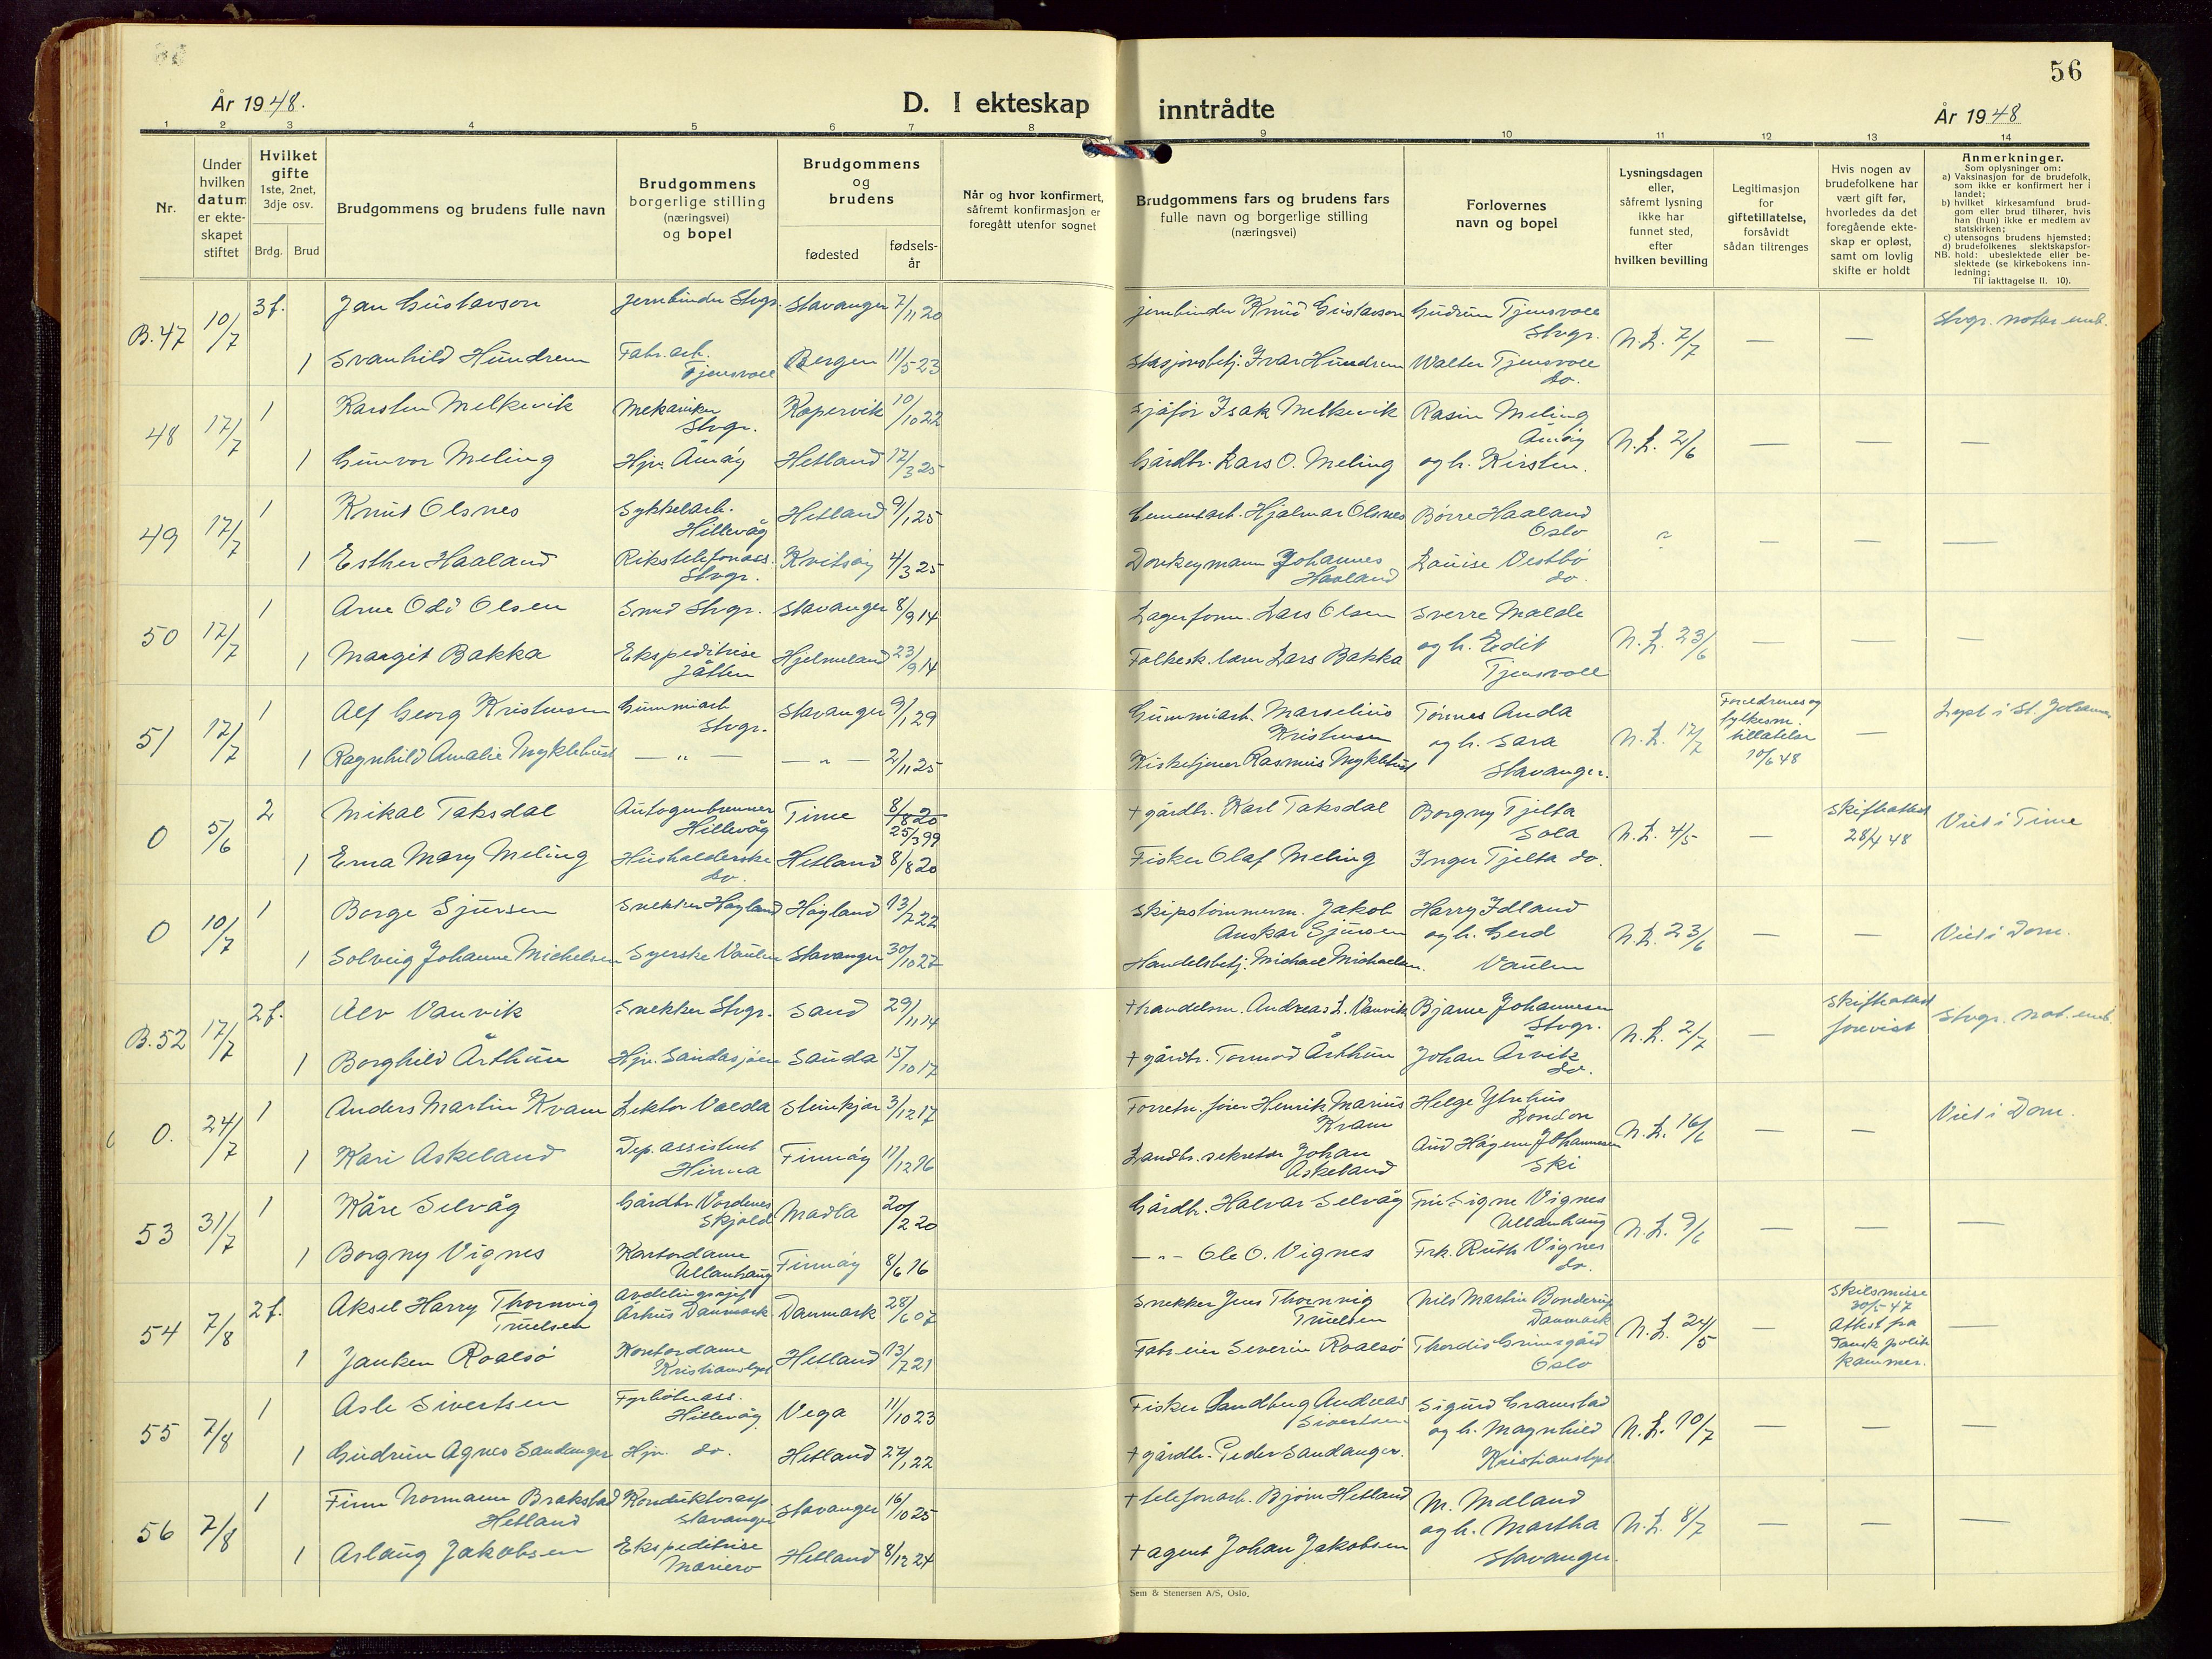 56
År 1948.
D. I ekteskap inntrådte
År 1948
1 2 3 4 5 6 7 8 9 10 11 12 13 14
Nr.
Under hvilken datum er ekteskapet stiftet
Hvilket gifte 1ste, 2net, 3dje osv.
Brdg. Brud
Brudgommens og brudens fulle navn
Brudgommens borgerlige stilling (næringsvei) og bopel
Brudgommens og brudens
fødested
fødselsår
Når og hvor konfirmert, såfremt konfirmasjon er foregått utenfor sognet
Brudgommens fars og brudens fars fulle navn og borgerlige stilling (næringsvei)
Forlovernes navn og bopel
Lysningsdagen eller, såfremt lysning ikke har funnet sted, efter hvilken bevilling
Legitimasjon for giftetillatelse, forsåvidt sådan tiltrenges
Hvis nogen av brudefolkene har vært gift før, hvorledes da det foregående ekteskap er opløst, samt om lovlig skifte er holdt
Anmerkninger.
Som oplysninger om:
a) Vaksinasjon for de brudefolk, som ikke er konfirmert her i landet;
b) hvilket kirkesamfund brudgom eller brud tilhører, hvis han (hun) ikke er medlem av statskirken;
c) utensogns brudens hjemsted;
d) brudefolkenes slektskapsforhold: ubeslektede eller beslektede (se kirkebokens innledning;
NB. Til iakttagelse II. 10).
B.47 10/7 3f. Jan Gustavson jernbinder Stvgr. Stavanger 7/11 20 jernbinder Knud Gustavson Gudrun Tjensvoll Stvgr. N.L. 7/7 — — Stvgr. notar. emb.
1 Svanhild Hundrem Fabr.arb. Tjensvoll Bergen 11/5 23 Stasjonsbetj. Ivar Hundrem Walter Tjensvoll do.
48 17/7 1 Karsten Melkevik Mekaniker Stvgr. Kopervik 10/10 22 Sjåfør Isak Melkevik Rasm Meling Åmøy N.L. 2/6 — — —
1 Gunvor Meling Hjv. Åmøy Hetland 17/3 25 Gårdbr. Lars O. Meling og h. Kirsten.
49 17/7 1 Knut Olsnes Sykkelarb. Hillevåg Hetland 9/1 25 Cementarb. Hjalmar Olsnes Børre Haaland Oslo ? — — —
1 Esther Haaland Rikstelefonass. Stvgr. Kvitsøy 4/3 25 Donkeymann Johannes Haaland Louise Vestbø do.
50 17/7 1 Arne Odd Olsen Smed Stvgr. Stavanger 8/9 14 Lagerform. Lars Olsen Sverre Malde N.L. 23/6 — — —
1 Margit Bakka Ekspeditrise Jåtten Hjelmeland 23/9 14 Folkesk.lærer Lars Bakka og h. Edit Tjensvoll
51 17/7 1 Alf Georg Kristensen Gummiarb Stvgr. Stavanger 9/1 29 Gummiarb. Marselius Kristensen Tønnes Anda N.L. 17/7 Foreldrenes og fylkesm. tillatelse 10/6 48 — Lyst i St. Johannes
1 Ragnhild Amalie Myklebust — " — — " — 2/11 25 Kirketjener Rasmus Myklebust og h. Sara Stavanger.
0 5/6 2 Mikal Taksdal Autogenbrenner Hillevåg Time 8/8 20 25/3 99 + gårdbr. Karl Taksdal Borgny Tjelta Sola N.L. 4/5 — Skifteattest 28/4 48 Viet i Time
1 Erna Mary Meling Husholderske do. Hetland 8/8 20 Fisker Olaf Meling Inger Tjelta do.
0 10/7 1 Borge Sjursen Snekker Høyland Høyland 13/7 22 Skipstømmerm. Jakob Anskar Sjursen Harry Idland N.L. 23/6 — — Viet i Dom.
1 Solveig Johanne Michelsen Syerske Vaulen Stavanger 30/10 27 Handelsbetj. Michael Michaelsen. og h. Gerd Vaulen
B.52 17/7 2f. Alv Vanvik Snekker Stvgr. Sand 29/11 14 + handelsm. Andreas L. Vanvik Bjarne Johannesen Stvgr. N.L. 2/7 — Skifteattest forevist Stvgr. not. emb.
1 Borghild Årthun Hjv. Sandasjøen Sauda 15/10 17 + gårdbr. Tormod Årthun Johan Årvik do.
0. 24/7 1 Anders Martin Kvam Lektor Volda Steinkjer 3/12 17 Forretn. fører Henrik Marius Kvam Helge Ytrehus London N.L. 16/6 — — Viet i Dom.
1 Kari Askeland Dep. assistent Hinna Finnøy 11/12 16 Landbr. sekretær Johan Askeland Aud Høgenn Johannesen Ski
53 31/7 1 Kåre Selvåg Gårdbr. Vordenes Skjold Madla 20/2 20 Gårdbr. Halvar Selvåg Fru Signe Vignes Ullanhaug N.L. 9/6 — — —
1 Borgny Vignes Kontordame Ullanhaug Finnøy 8/6 16 — " — Ole O. Vignes Frk. Ruth Vignes do.
54 7/8 2f. Aksel Harry Thornvig Truelsen Avdelingssjef Århus Danmark Danmark 28/6 07 Snekker Jens Thornvig Truelsen Nils Martin Bonderup Danmark N.L. 24/5 — Skilsmisse 30/5 47 Attest fra Dansk politikammer. —
1 Janken Roalsø Kontordame Kristianslyst Hetland 13/7 21 Fabr.eier Severin Roalsø Thordis Grimsgård Oslo
55 7/8 1 Asle Sivertsen Fyrbøterass. Hillevåg Vega 11/10 23 Fisker Sandberg Andreas Sivertsen Sigurd Gramstad N.L. 10/7 — — —
1 Gudrun Agnes Sandanger Hjv. do. Hetland 27/1 22 + gårdbr. Peder Sandanger. og h. Magnhild Kristianslyst
56 7/8 1 Finn Normann Brakstad Hetland Konduktørasp. Stavanger Stavanger 16/10 25 + telefonarb. Bjørn Hetland M. Maland N.L. 8/7 — — —
1 Aslaug Jakobsen Ekspeditrise Mariero Hetland 8/12 24 + agent Johan Jakobsen og h. Martha Stavanger.
Sem & Stenersen A/S, Oslo.